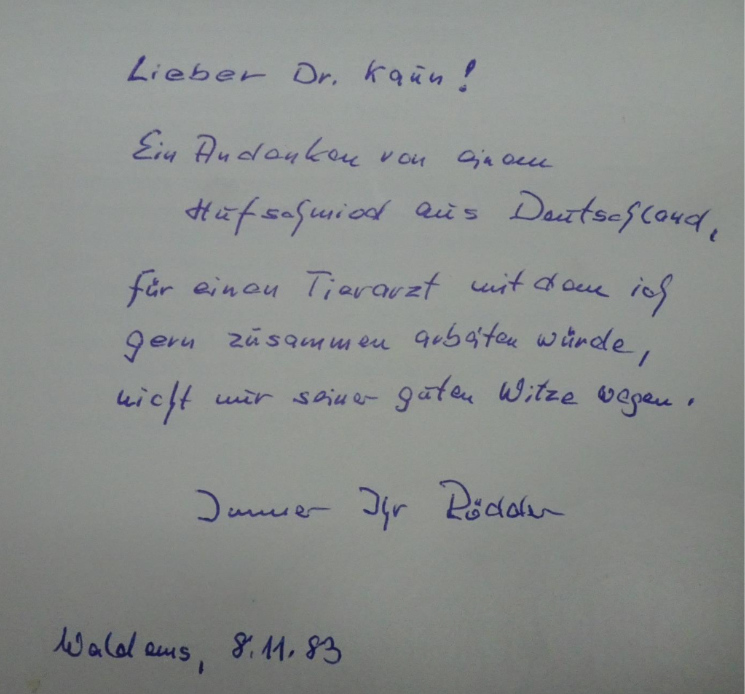 Lieber Dr. Kaun!
Ein Andenken von einem
Hufschmied aus Deutschland,
für einen Tierarzt mit dem ich
gern zusammen arbeiten würde,
nicht nur seiner guten Witze wegen.
Immer Ihr Rödder
Waldems, 8.11.83